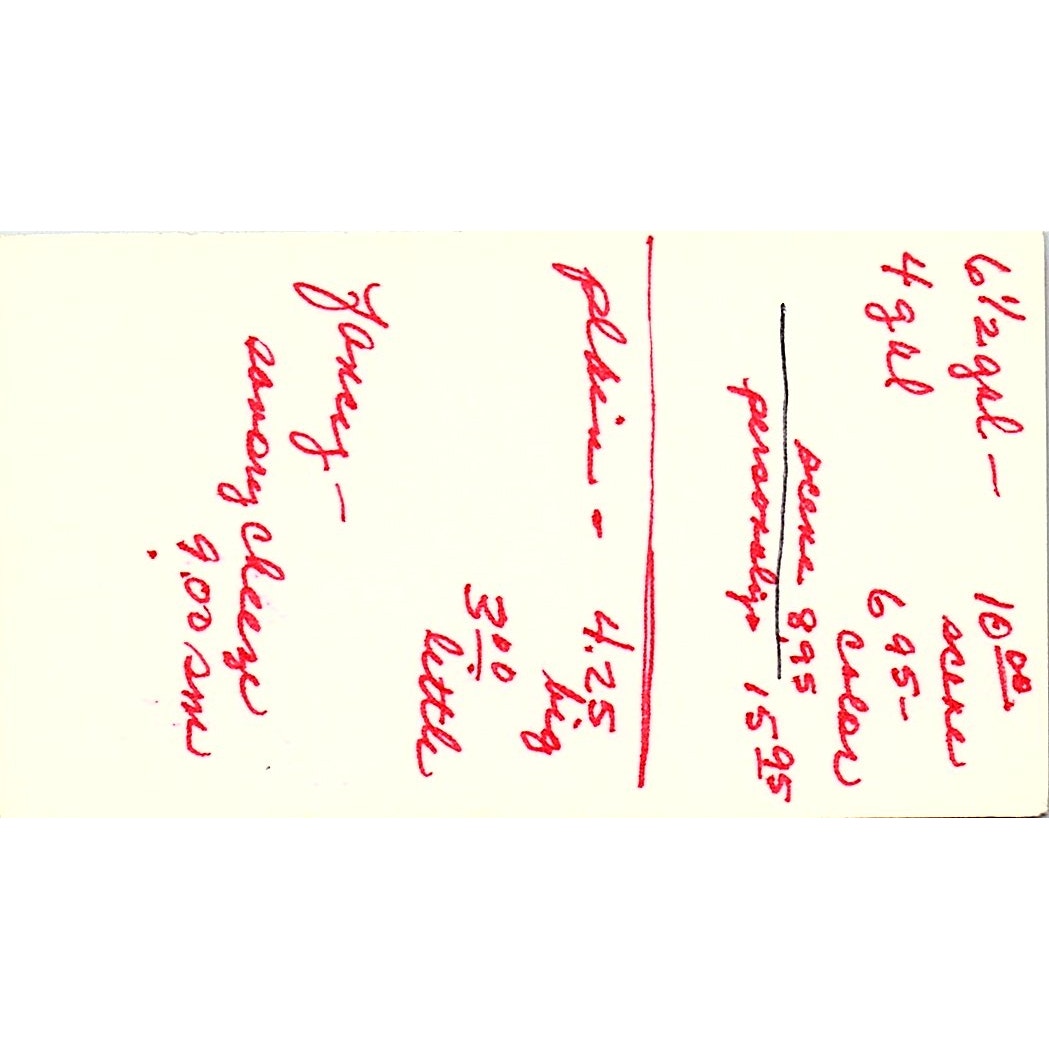 6 1/2 gal — 10.00
scene
4 gal 6 95-
color
scene 8,95
personaliz. 15 95
plain - 4.25
big
3.00
little
Fancy -
savory cheese
9.00 sm